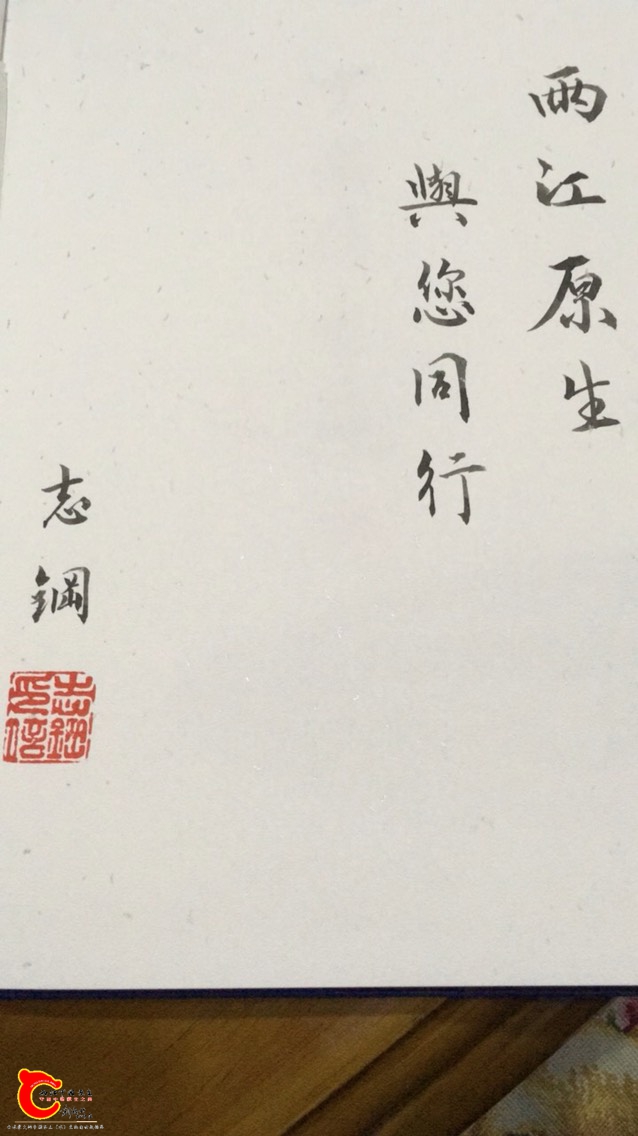 两江原生
與您同行
志鋼
志鋼印信